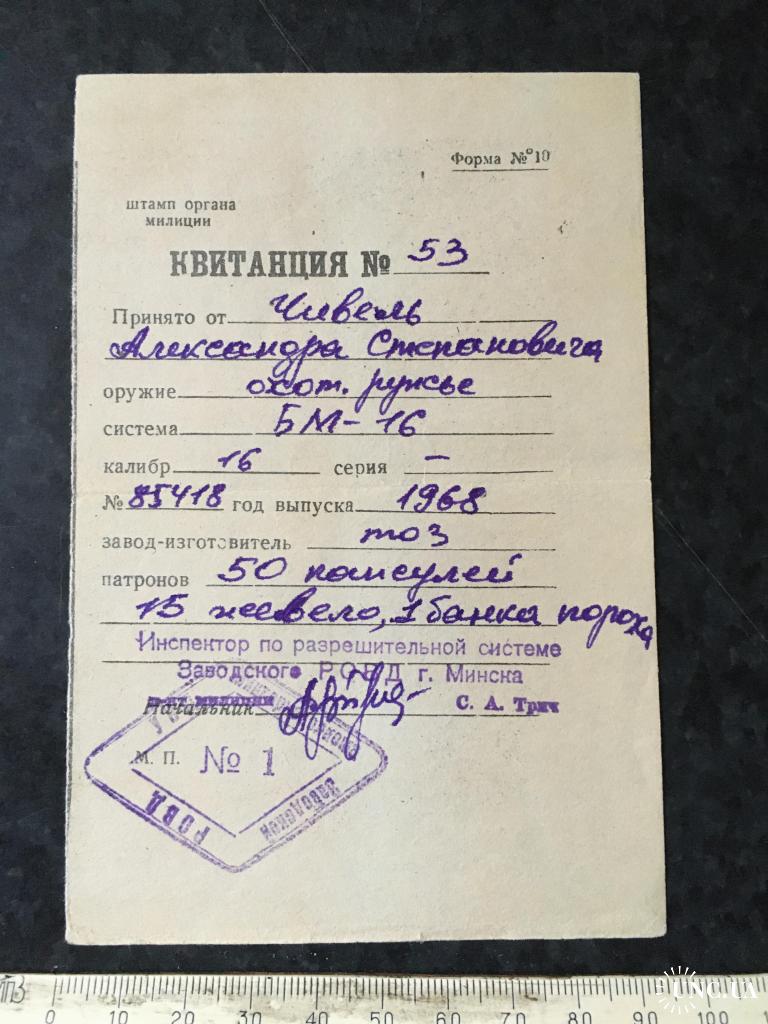 Форма № 10
штамп органа
милиции
КВИТАНЦИЯ № 53
Принято от Чивель
Александра Степановича
оружие охот. ружье
система БМ-16
калибр 16 серия —
№ 85418 год выпуска 1968
завод-изготовитель тоз
патронов 50 капсулей
15 жевело, 1 банка пороха
Инспектор по разрешительной системе
Заводского РОВД г. Минска
Начальник С. А. Трич
М. П. № 1
Заводской
РОВД
0 10 20 30 40 50 60 70 80 90 100
UNC.UA